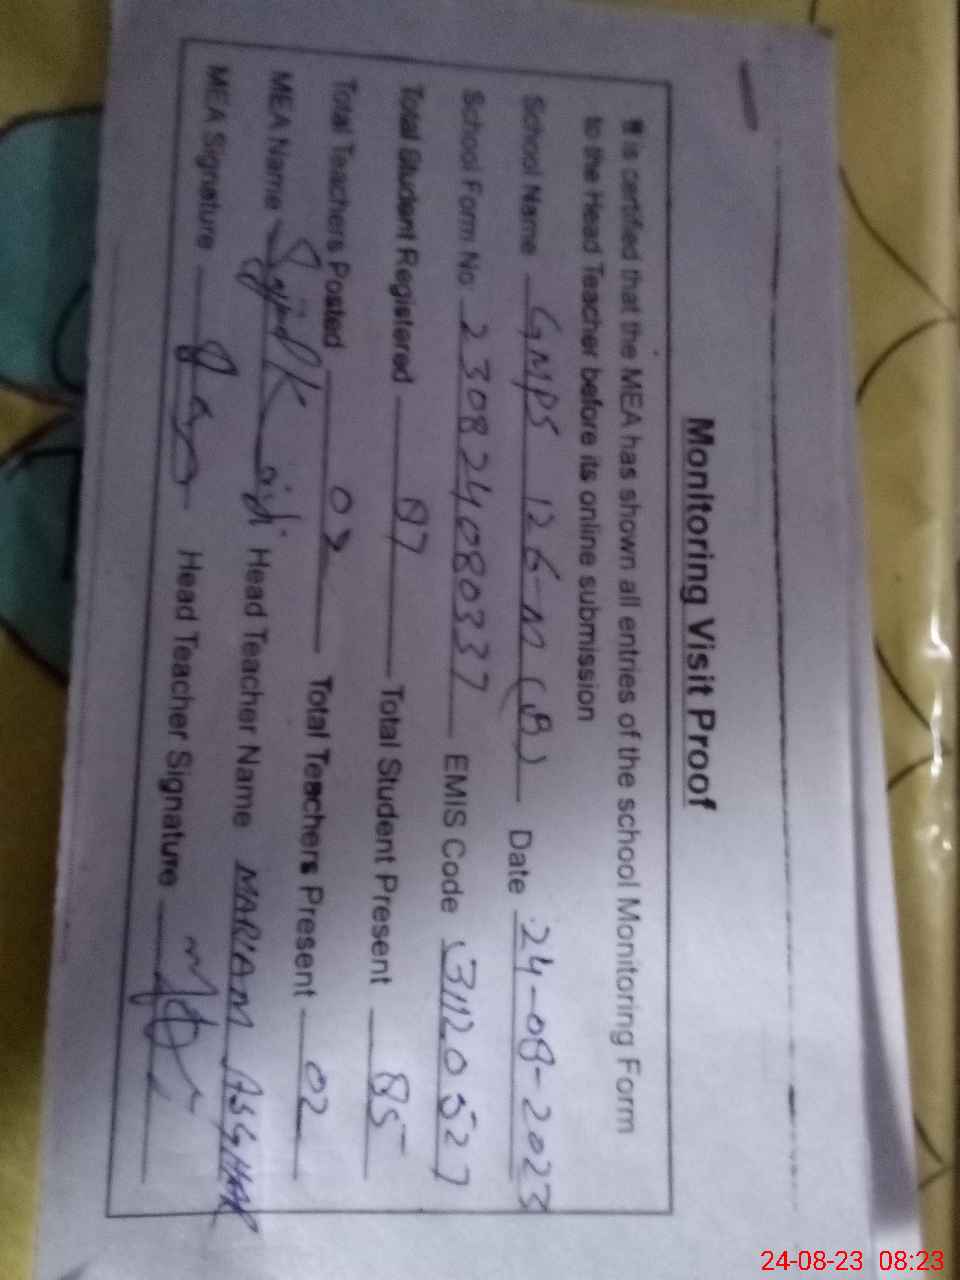 Monitoring Visit Proof
It is certified that the MEA has shown all entries of the school Monitoring Form
to the Head Teacher before its online submission
School Name GMPS 126-M (B) Date 24-08-2023
School Form No 230824080337 EMIS Code 31120527
Total Student Registered 87 Total Student Present 85
Total Teachers Posted 02 Total Teachers Present 02
MEA Name Head Teacher Name MARIAM ASGHAR
MEA Signature Head Teacher Signature
24-08-23 08:23